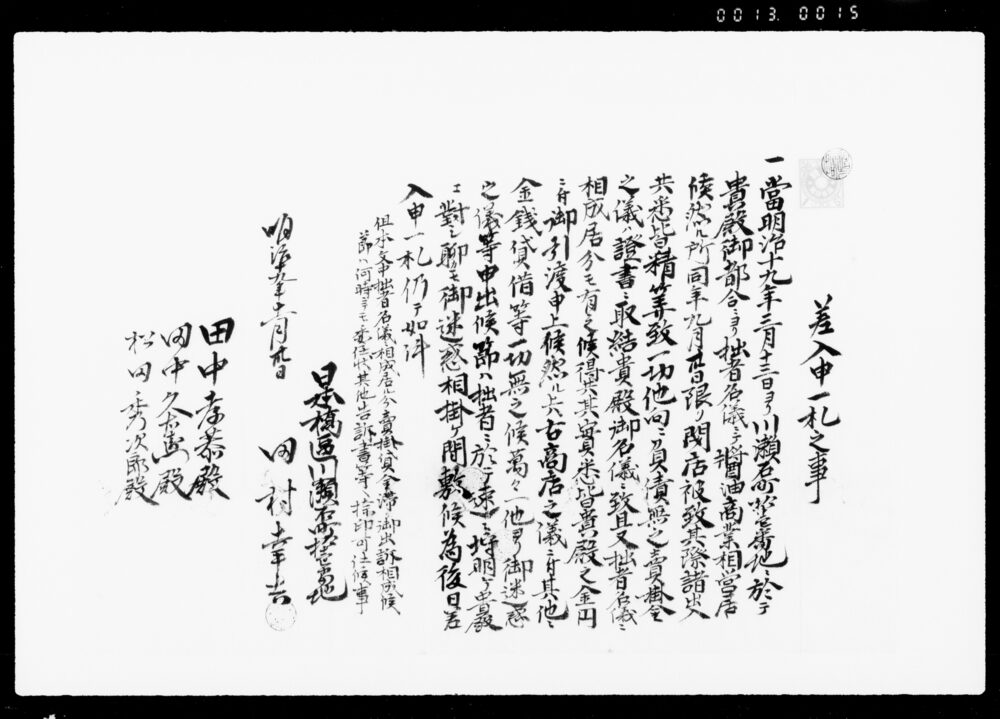 0013.0015
差入申一札之事
一當明治十九年三月十三日ヨリ川瀬石町拾壱番地ニ於テ
貴殿御都合ニヨリ拙者名儀ニテ醤油商業相営居
候然ル所同年九月 日限り閉店被致其際諸出入
共悉皆精算等致一切他向ニ負債無之賣掛金
之儀ハ證書ニ取結貴殿御名儀ニ致且又拙者名儀ニ
相成居分モ有之候得共其實悉皆貴殿之金円
ニ付御引渡申上候然ル上ハ右商店之儀ニ付其他ニ
金錢貸借等一切無之候萬々一他ヨリ御迷惑
之儀等申出候節ハ拙者ニ於テ速ニ埒明ケ貴殿
エ對シ聊モ御迷惑相掛ケ間敷候為後日差
入申一札仍テ如件
但本文中拙者名儀相成居候分賣掛貸金滞御出訴相成候
節ハ何時ニテモ委任状其他告訴書等ニ捺印可仕候事
明治十九年十月 日
日本橋區川瀬石町拾壱番地
田村幸吉
田中孝恭殿
田中久右衛門殿
松田秀次郎殿